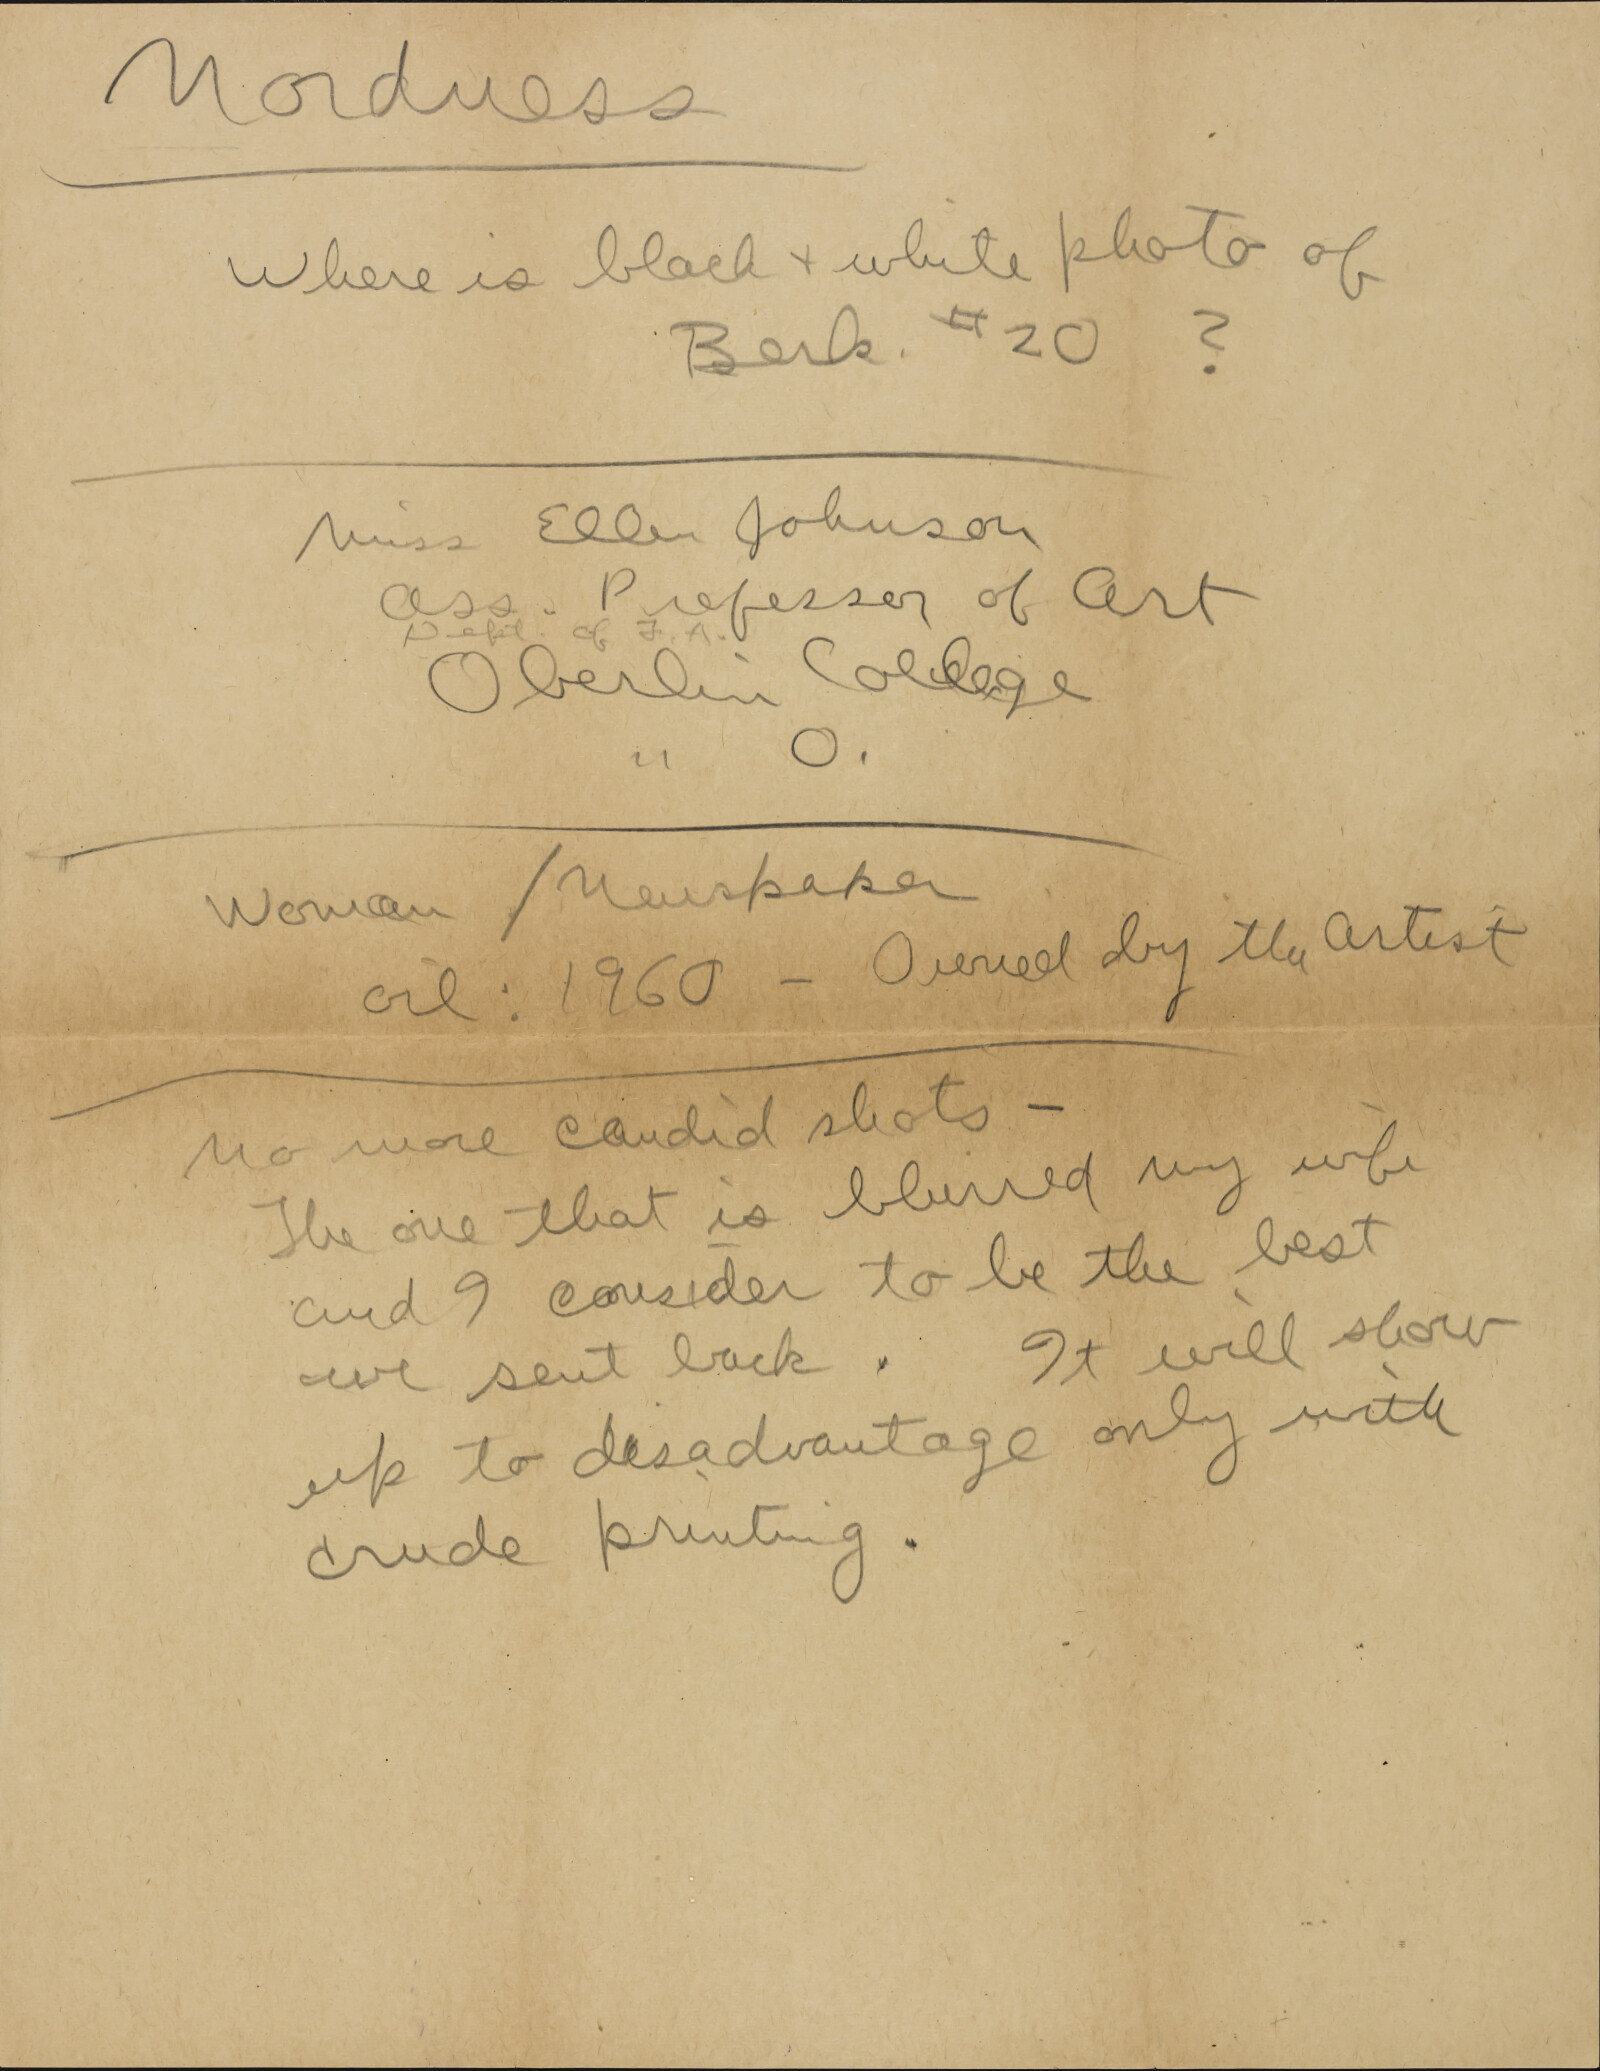 Nordness
Where is black + white photo of
Berk. #20 ?
Miss Ellen Johnson
Ass. Professor of Art
Dept. of F.A.
Oberlin College
" O.
Woman / Newspaper
oil : 1960 - Owned by the Artist
No more candid shots -
The one that is blurred my wife
and I consider to be the best
we sent back. It will show
up to disadvantage only with
crude printing.